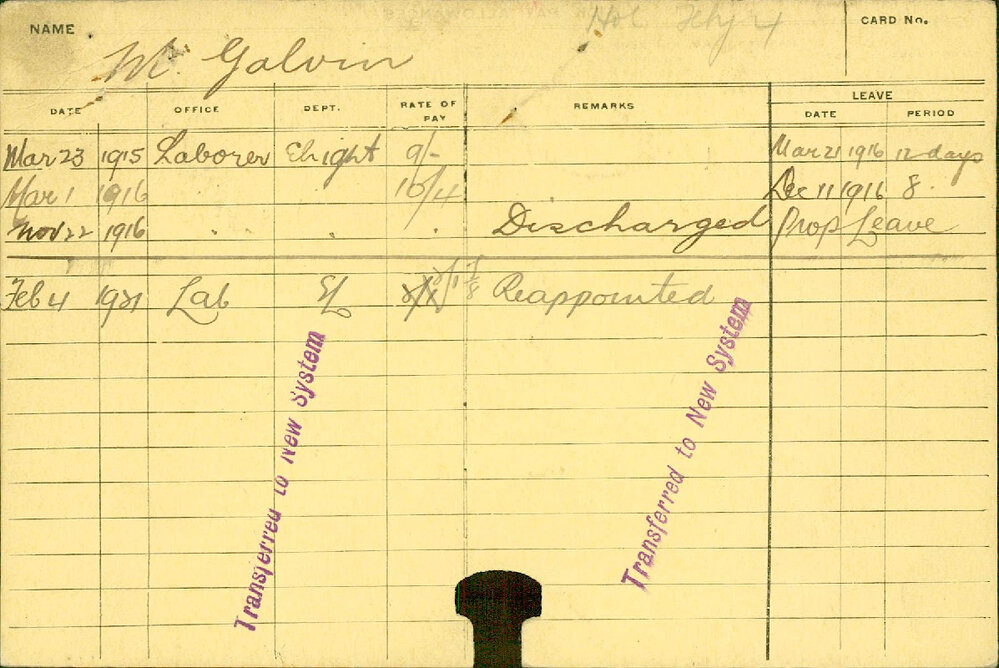 NAME
M. Galvin
CARD No.
DATE OFFICE DEPT. RATE OF PAY REMARKS LEAVE
DATE PERIOD
Mar 23 1915 Laborer 9/- Mar 21 1916 12 days
Mar 1 1916 10/4 Dec 11 1916 8.
Nov 22 1916 . . . Discharged Prop Leave
Feb 4 1921 Lab EL Reappointed
Transferred to New System
Transferred to New System